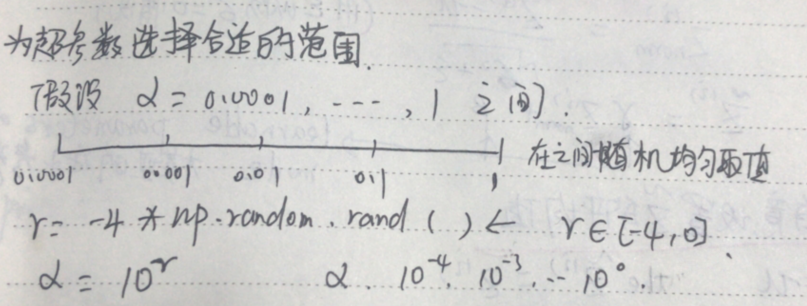 为超参数选择合适的范围.
假设 α = 0.0001, ---, 1 之间.
0.0001 0.001 0.01 0.1 1 在之间随机均匀取值
r = -4 * np.random.rand ( ) ← r∈[-4,0].
α = 10^r α. 10^-4. 10^-3. … 10^0